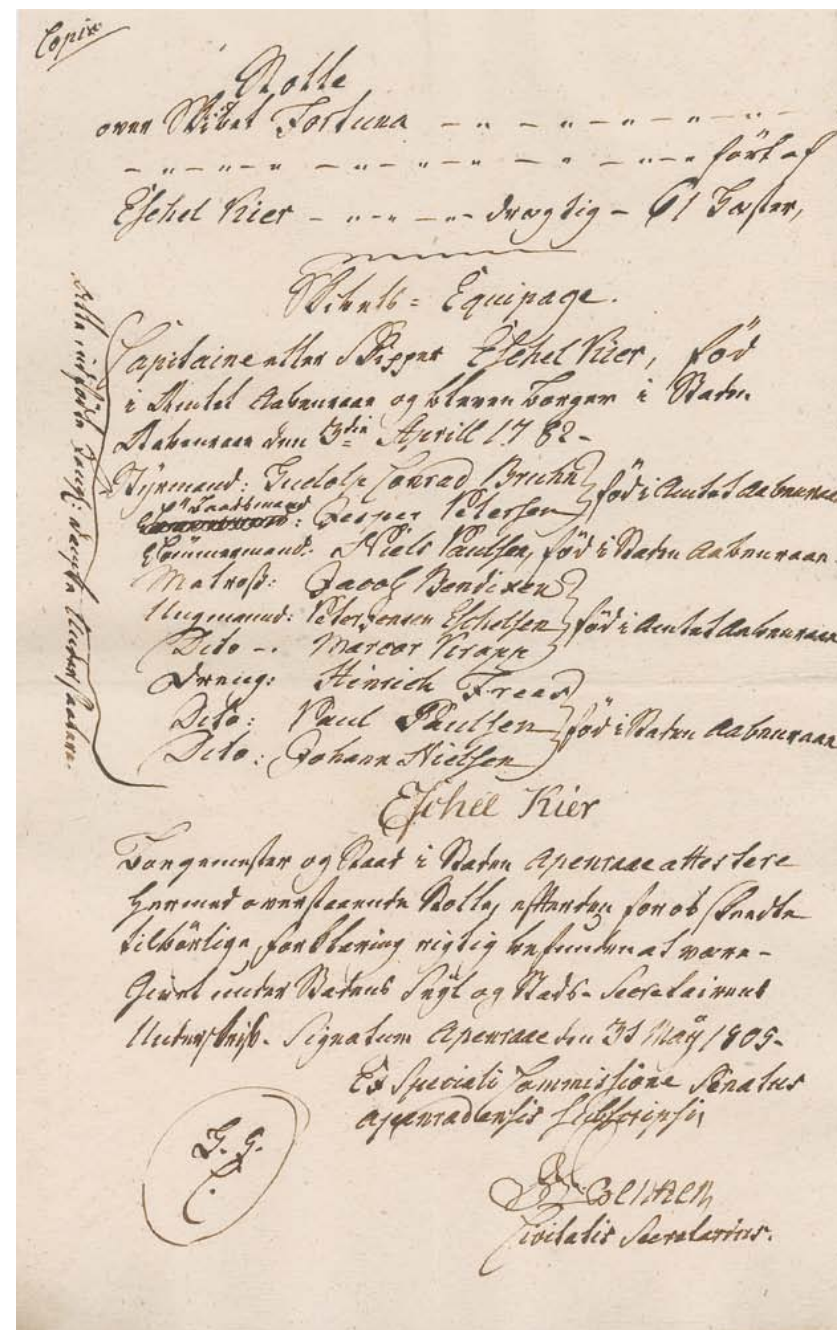 Copie
Rolle
over Skibet Fortuna
fört af
Eschel Kier drægtig 61 Læster,
Skibets Equipage.
Capitaine eller Skipper Eschel Kier, föd
i Amtet Aabenraae og bleven Borger i Staden
Aabenraae den 3die Aprill 1782
Styrmand: Conrad Bruhn
Baadsmand: Jesper Petersen föd i Amtet Aabenraae
Tömmermand: Niels Paulsen, föd i Staden Aabenraae
Matros: Jacob Bendixen
Ungmand: Peter Jensen Eschelsen föd i Amtet Aabenraae
Dito Krapp
Dreng: Hinrich Frees
Dito: Paul Paulsen föd i Staden Aabenraae
Dito: Johann Nielsen
Eschel Kier
Borgemester og Raad i Staden Apenraae attestere
hermed overstaaende Rolle, efter den for os skeedte
tilbörlige forklaring rigtig befunden at være
Givet under Stadens Seyl og Stads Secretairens
Underskrift. Signatum Apenraae den 31 May 1805
Ex Speciali Commissione Senatus
Apenradensis subscripsi,
Civitatis Secretarius.